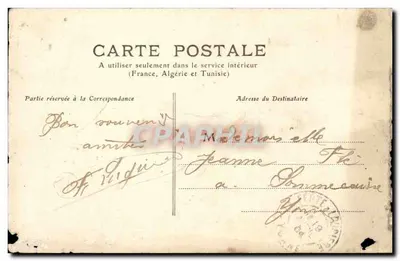 CARTE POSTALE
A utiliser seulement dans le service intérieur
(France, Algérie et Tunisie)
Partie réservée à la Correspondance
Adresse du Destinataire
Bon souvenir
amitiés
Mademoiselle
Jeanne
a Sommecaise
Yonne
CPARTI